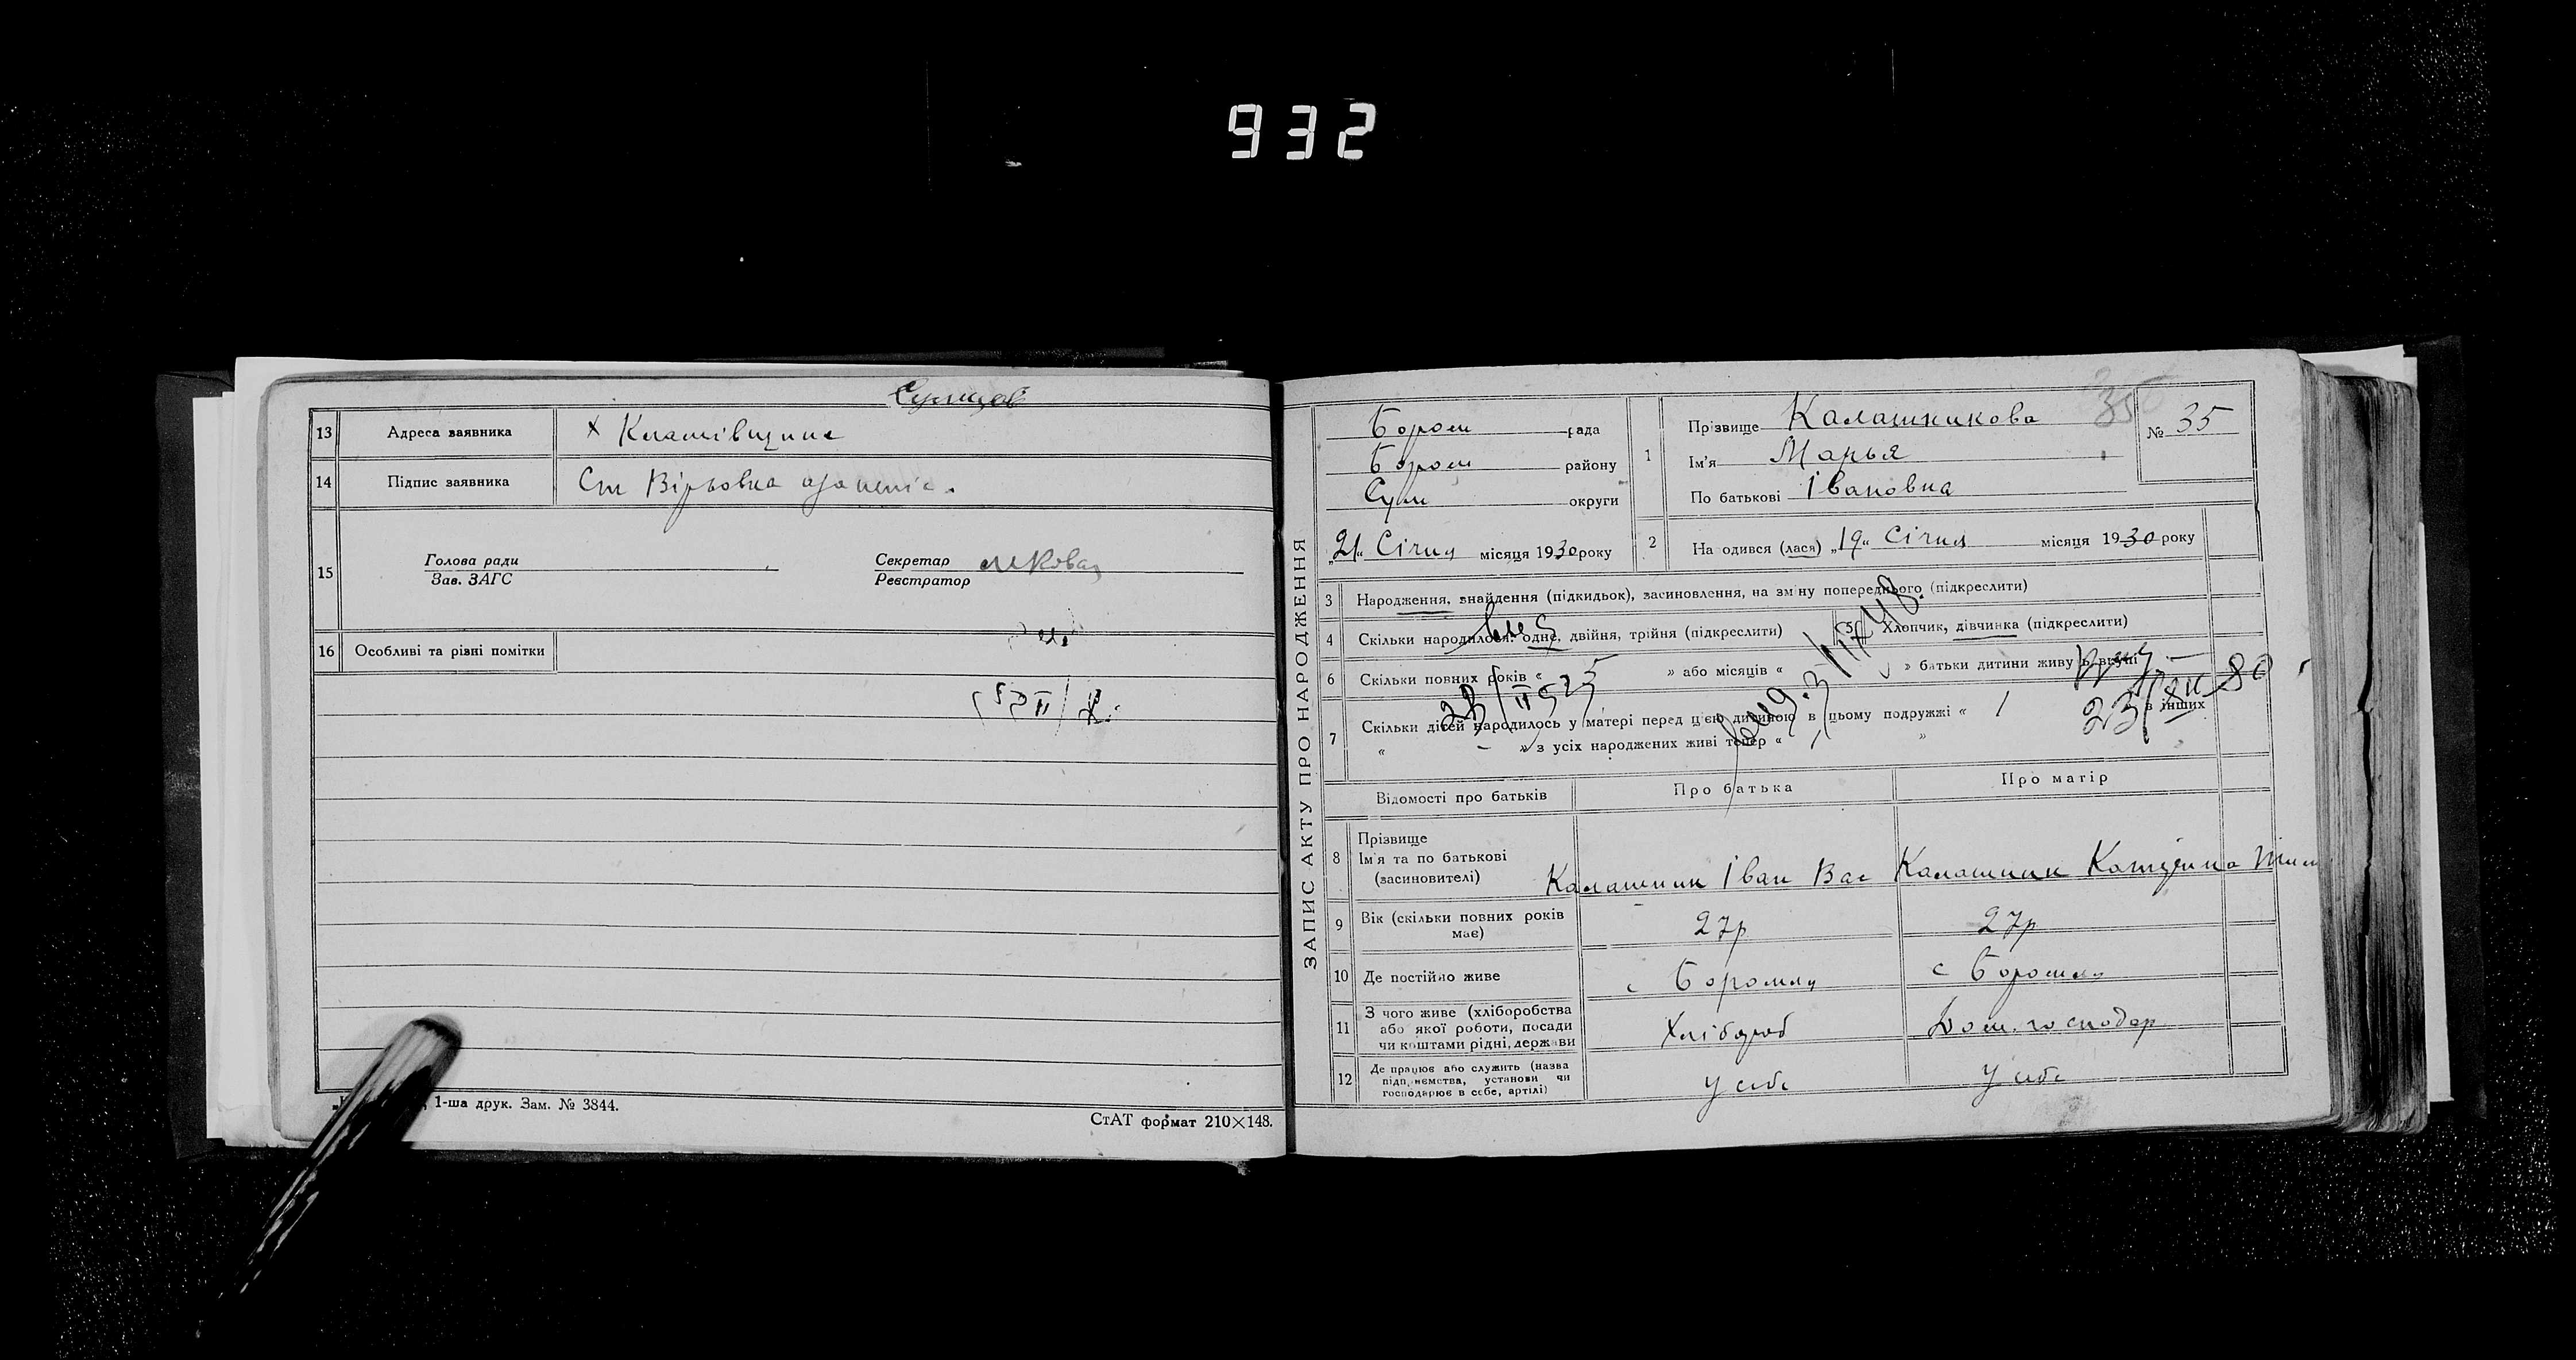 932
Сумцов
13 Адреса заявника х Климівщина
14 Підпис заявника Ст
15 Голова ради
Зав. ЗАГС
Секретар
Реєстратор
16 Особливі та різні помітки
1-ша друк. Зам. № 3844.
СтАТ формат 210×148.
ЗАПИС АКТУ ПРО НАРОДЖЕННЯ
Бором рада
Бором району
Сум округи
„21“ Січня місяця 1930 року
1 Прізвище Калашникова
Ім'я Марья
По батькові Івановна
35
№ 35
2 На одився (лася) „19“ Січня місяця 1930 року
3 Народження, знайдення (підкидьок), засиновлення, на зміну попереднього (підкреслити)
4 Скільки народилося: одне, двійня, трійня (підкреслити)
5 Хлопчик, дівчинка (підкреслити)
6 Скільки повних років « » або місяців « » батьки дитини живу ь вкупі
23/XII-80
7 Скільки дітей народилось у матері перед цією дитиною в цьому подружжі « 1 в інших
« – » з усіх народжених живі тепер « »
Відомості про батьків Про батька Про матір
8 Прізвище
Ім'я та по батькові
(засиновителі)
Калашник Іван Вас Калашник Катерина Тим
9 Вік (скільки повних років має) 27р 27р
10 Де постійно живе с Боромля с Боромля
11 З чого живе (хліборобства
або якої роботи, посади
чи коштами рідні, держави
Хлібороб Дом. господар
12 Де працює або служить (назва
підп иємства, установи чи
господарює в себе, артілі)
У себе У себе